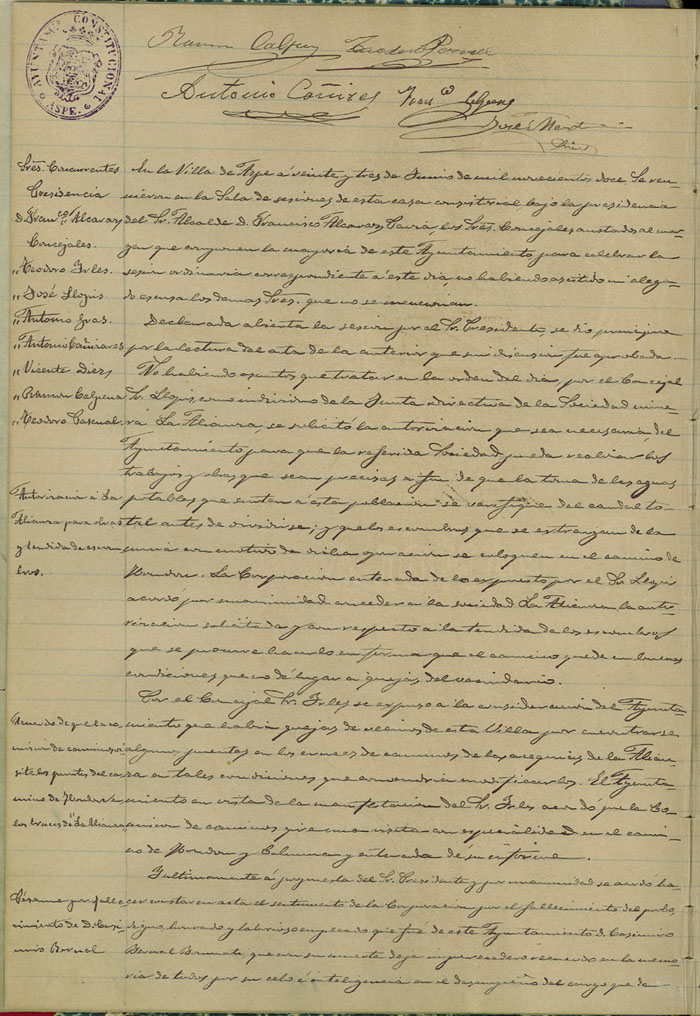 AYUNTAMº CONSTITUCIONAL
ASPE.
Ramon Calpena Teodoro Pascual
Antonio Cañizares Franco
José
Sres. Concurrentes
Presidencia
D. Franco Alcaraz
Concejales.
" Teodoro Irles.
" José Llopis
" Antonio Gras.
" Antonio Cañizares
" Vicente Diez
" Ramon Calpena
" Teodoro Pascual
En la Villa de Aspe á veinte y tres de Junio de mil novecientos doce. Se reu-
nieron en la Sala de sesiones de esta casa consistorial bajo la presidencia
del Sr. Alcalde D. Francisco Alcaraz los Sres. Concejales anotados al mar-
gen que componen la mayoría de este Ayuntamiento, para celebrar la
sesion ordinaria correspondiente á este dia, no habiendo asistido ni alega-
do escusa los demas Sres. que no se mencionan.
Declarada abierta la sesion por el Sr. Presidente, se dió principio
por la lectura del acta de la anterior que sin discusion fue aprobada.
No habiendo asuntos que tratar en la orden del dia, por el Concejal
Sr. Llopis, como individuo de la Junta directiva de la Sociedad mine-
ra La Alianza, se solicitó la autorizacion que sea necesaria, del
Ayuntamiento para que la referida Sociedad pueda realizar los
trabajos y obras que sean precisas á fin de que la toma de las aguas
potables que surten á esta poblacion se verifique del caudal to-
tal antes de dividirse; y que los escombros que se extraigan de la
mina con motivo de dicha operacion se coloquen en el camino de
Hondon. La Corporacion enterada de lo expuesto por el Sr. Llopis
acordó por unanimidad conceder á la sociedad La Alianza la auto-
rizacion solicitada y con respecto á la tendida de los escombros
que se procure hacerlo en forma que el camino quede en buenas
condiciones que no dé lugar á quejas del vecindario.
Autorizacion á La
Alianza para obras
y tendida de escom-
bros.
Por el Concejal Sr. Irles se expuso á la consideracion del Ayunta-
miento que habia quejas de vecinos de esta Villa por encontrarse
algunos puentes en los cruces de caminos de las acequias de la Alian-
za en tales condiciones que convendria modificarlos. El Ayunta-
miento en vista de la manifestacion del Sr. Irles acordó que la Co-
mision de caminos gire una visita con especialidad en el cami-
no de Hondon y Columna y enterada dé su informe.
Acuerdo de que la co-
mision de caminos vi-
site los puentes del ca-
mino de Hondon
los cruces de "La Alianza"
Y ultimamente á propuesta del Sr. Presidente y por unanimidad se acordó ha-
cer constar en acta el sentimiento de la Corporacion por el fallecimiento del
digno, honrado y laborioso empleado que fué de este Ayuntamiento D. Casimiro
Bernal que con su muerte deja imperecedero recuerdo en la memo-
ria de todos por su celo é inteligencia en el desempeño del cargo que de
Pésame por falle-
cimiento de D. Casi-
miro Bernal